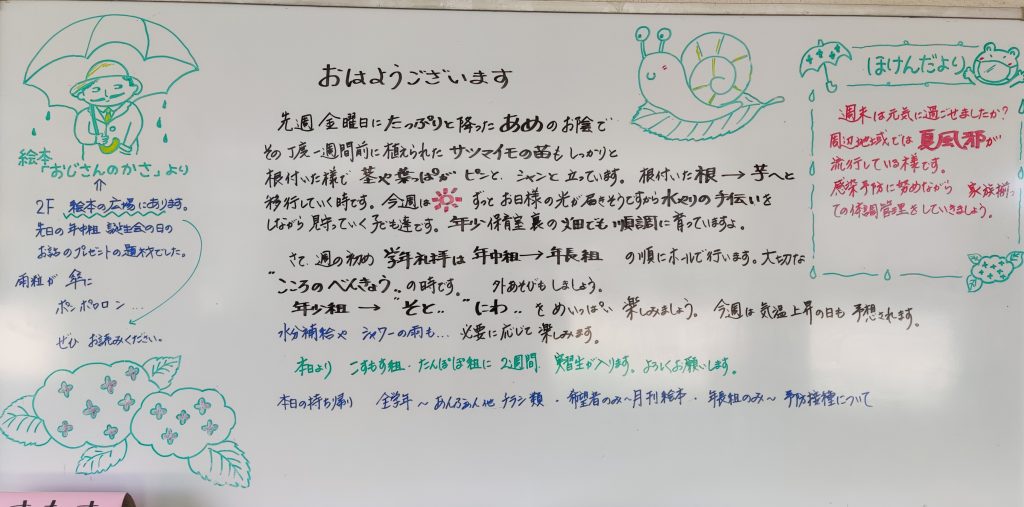 絵本
「おじさんのかさ」より
⇑
2F 絵本の広場にあります。
先日の年中組 誕生会の日の
お話のプレゼントの題材でした。
雨粒が 傘に
ポンポロロン…
ぜひ お読みください。
おはようございます
先週/金曜日に たっぷりと降った あめのお陰で
その丁度一週間前に植えられた サツマイモの苗も しっかりと
根付いた様で 茎や葉っぱが ピーンと、シャンと 立っています。 根付いた根 → 芋へと
移行していく時です。今週は ずっと お日様の光が届きそうですから 水やりの手伝いを
しながら 見守っていく子ども達です。年少保育室裏の畑でも 順調に 育っていますよ。
さて、週の初め 学年礼拝は 年中組→年長組 の順にホールで行います。大切な
"こころのべんきょう" の時です。 外あそびもしましょう。
年少組 → "そと" "にわ" を めいっぱい 楽しみましょう。 今週は 気温上昇の日も 予想されます。
水分補給や シャワーの雨も… 必要に応じて 楽しみます。
本日より こすもす組・たんぽぽ組に 2週間 実習生が入ります。よろしくお願いします。
本日の持ち帰り 全学年〜あんふぁん他 チラシ類 ・希望者のみ〜月刊絵本 ・年長組のみ〜 予防接種について
ほけんだより
週末は元気に過ごせましたか?
周辺地域では 夏風邪が
流行している様です。
感染予防に努めながら 家族揃っ
ての体調管理をしていきましょう。